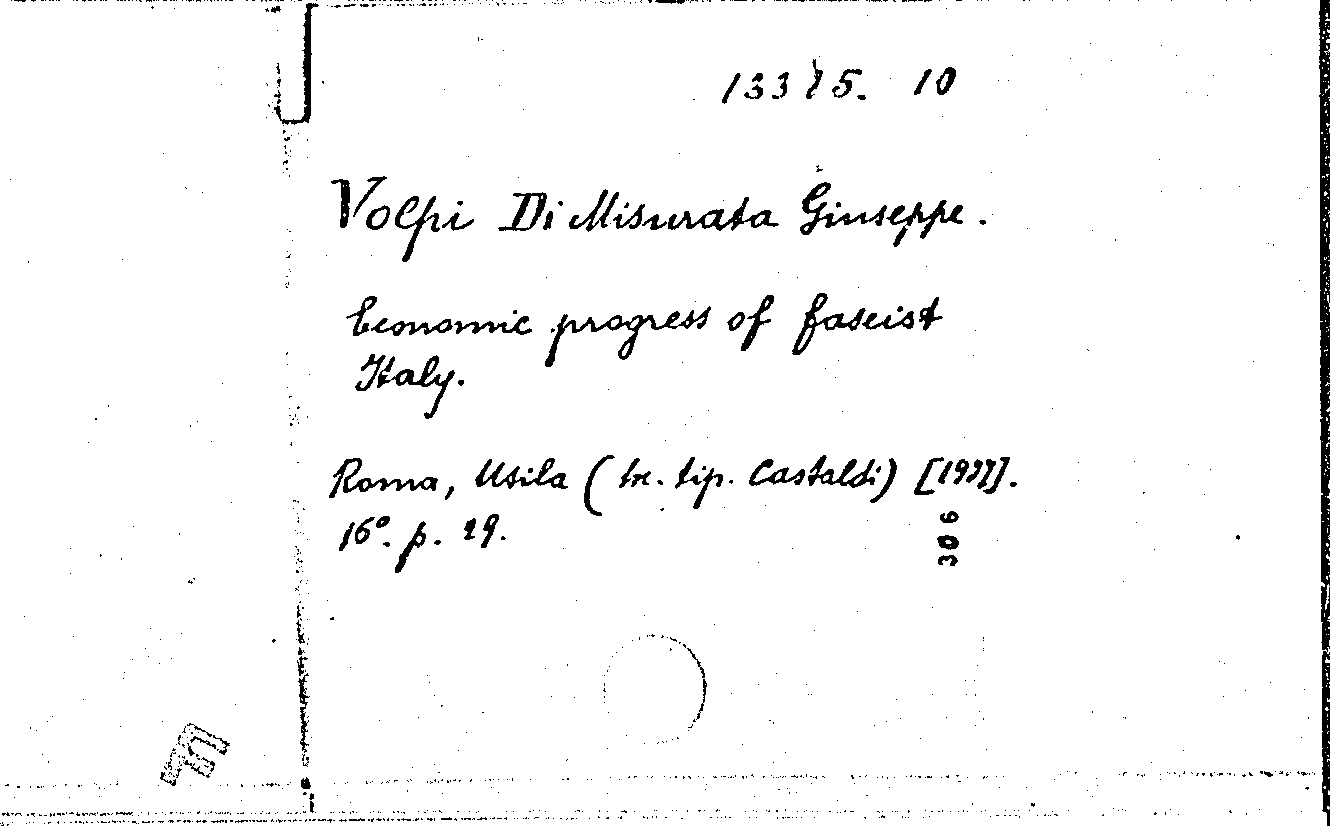 13375. 10
Volpi Di Misurata Giuseppe.
Economic progress of fascist
Italy.
Roma, Usila (tr. tip. Castaldi) [1937].
16º. p. 29.
306